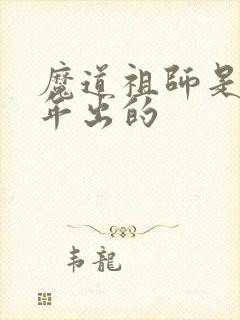 魔道祖師是
年出的
韦龍